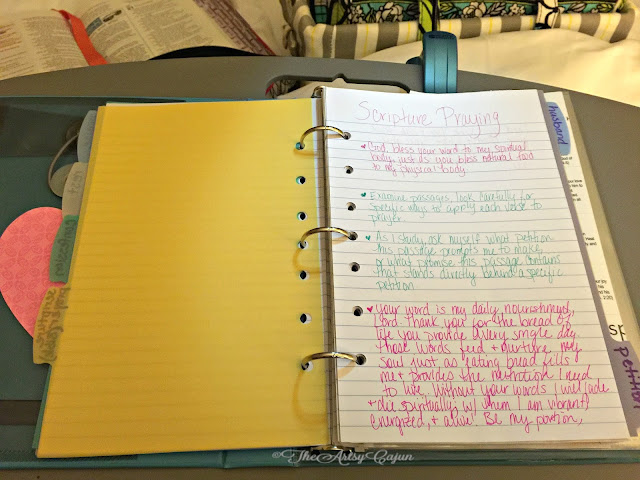 Scripture Praying
God, bless your word to my spiritual
body just as you bless natural food
to my physical body.
Examine passages, look carefully for
specific ways to apply each verse to
prayer
As I study, ask myself what petition
this passage prompts me to make,
or what promise this passage contains
that stands directly behind a specific
petition
Your word is my daily nourishment,
Lord. Thank you for the bread of
life you provide every single day.
Those words feed + nurture my
soul just as eating bread fills
me + provides the nutrition I need
to live. Without your words I will fade
+ die spiritually; w/ them I am vibrant,
energized, + alive! Be my portion,
husband
petition
©TheArtsyCajun